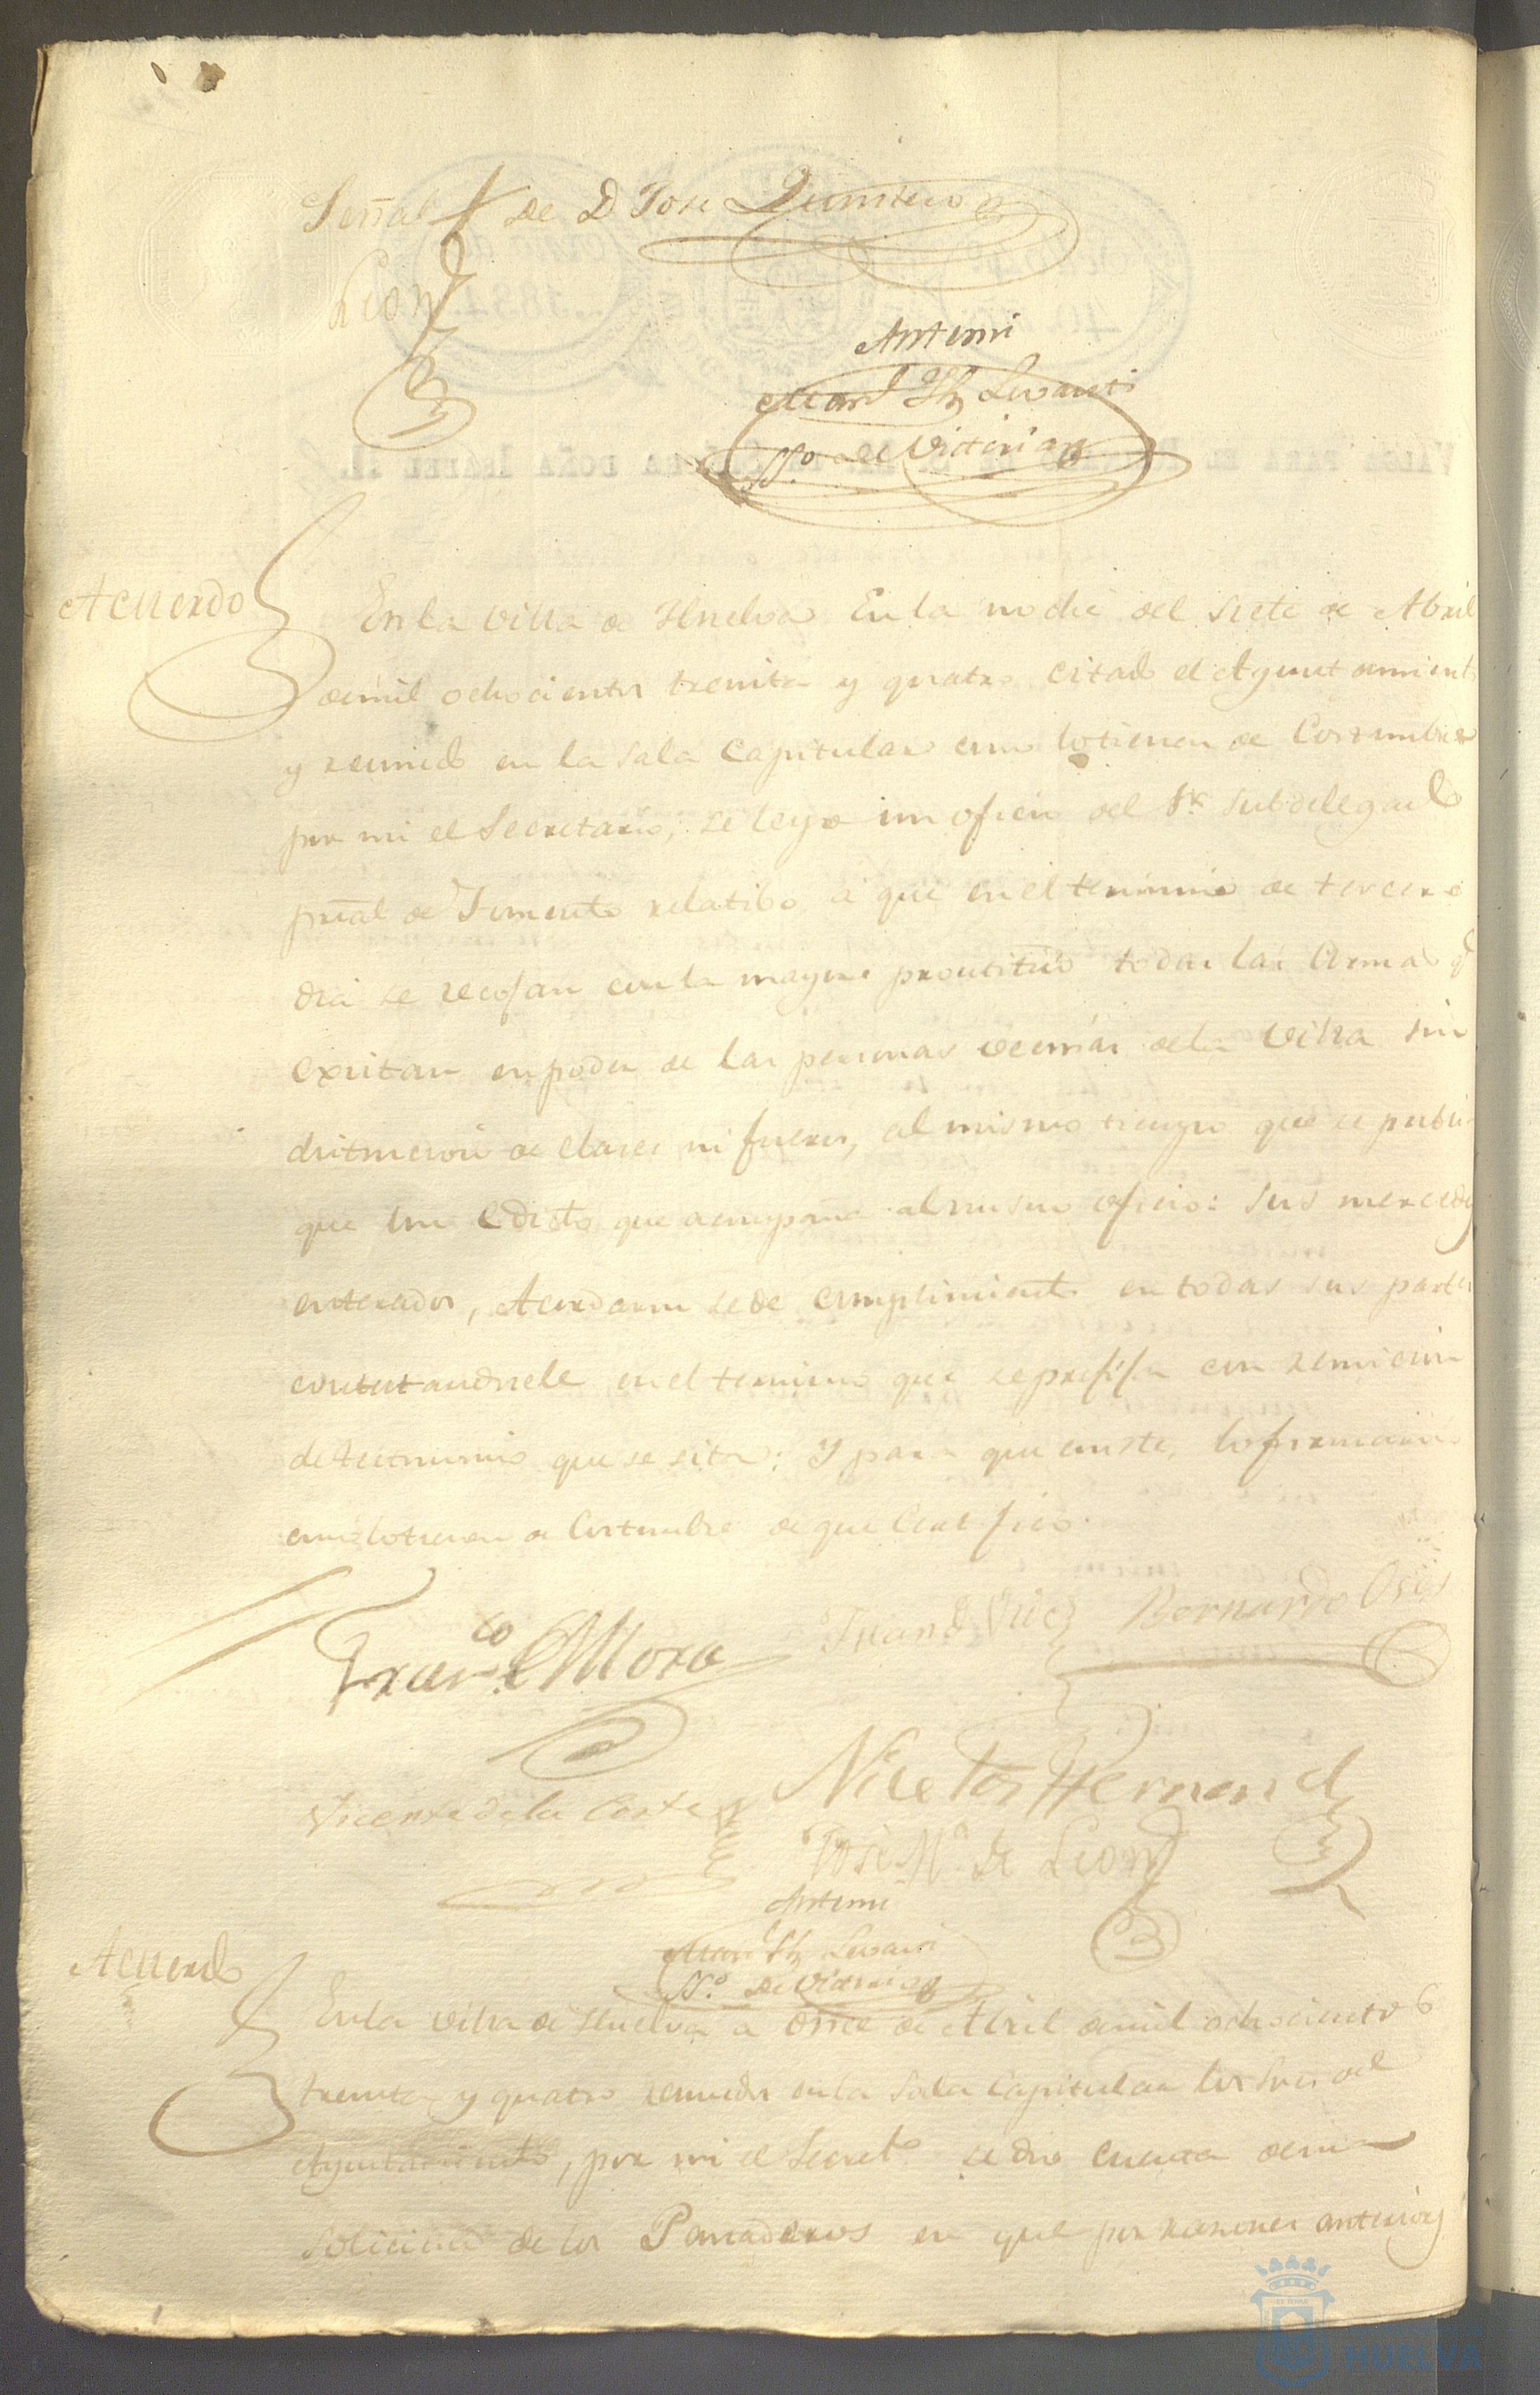 Señal + de D Jose Quintero
Leon
Antemi
de Victoria
Acuerdo
En la villa de Huelva En la noche del siete de Abril
demil ochocientos treinta y quatro citado el Ayuntamiento
y reunido en la sala Capitular como lotienen de Costumbre
por mi el Secretario, se leyo un oficio del Sr. Subdelegado
pral de Fomento relatibo a que en el termino de tercero
dia se recojan con la mayor prontitud todas las Armas q.e
existan en poder de las personas vecinas dela Villa sin
distincion de clases ni fueros, al mismo tiempo que se publi-
que un Edicto que acompaña al mismo oficio: sus mercedes
enterados, Acordaron sede cumplimiento en todas sus partes
contestandosele en el termino que se prefija con remicion
del testimonio que se cita: Y para que conste, lo firmaron
como lotienen de Costumbre de que Certifico.
Fran.co Mora
Juan Diez
Bernardo
Vicente de la Corte
Nicetos Hernand
Jose M.a de Leon
Antemi
de Victoria
Acuerdo
En la villa de Huelva a Once de Abril demil ochocientos
treinta y quatro reunidos en la Sala Capitular los Sres. del
Ayuntamiento, por mi el Secret.o se dio cuenta de una
solicitud de los Panaderos en que por razones anteriores
VALGA PARA EL REINADO DE S. M. LA SEÑORA DOÑA ISABEL II.
1834
HUELVA